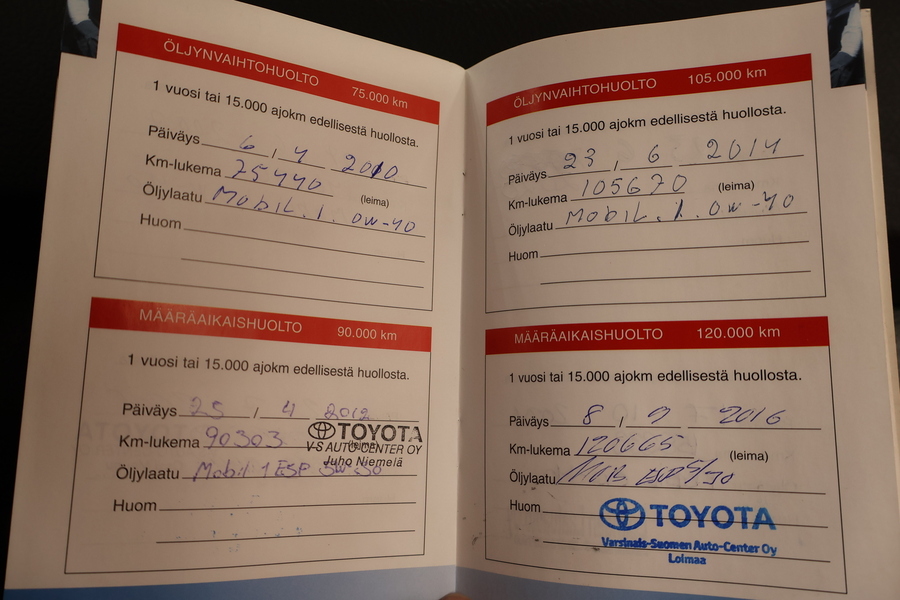 ÖLJYNVAIHTOHUOLTO 75.000 km
1 vuosi tai 15.000 ajokm edellisestä huollosta.
Päiväys 6, 4 2010
Km-lukema 75440
(leima)
Öljylaatu Mobil.1. 0W-40
Huom
MÄÄRÄAIKAISHUOLTO 90.000 km
1 vuosi tai 15.000 ajokm edellisestä huollosta.
Päiväys 25, 4 2012
TOYOTA
Km-lukema 90303 (leima)
V-S AUTOCENTER OY
Juho Niemelä
Öljylaatu Mobil 1 ESP 5W-30
Huom
ÖLJYNVAIHTOHUOLTO 105.000 km
1 vuosi tai 15.000 ajokm edellisestä huollosta.
Päiväys 23, 6 2014
Km-lukema 105670 (leima)
Öljylaatu Mobil.1. 0W-40
Huom
MÄÄRÄAIKAISHUOLTO 120.000 km
1 vuosi tai 15.000 ajokm edellisestä huollosta.
Päiväys 8, 9 2016
Km-lukema 120665
(leima)
Öljylaatu Mob ESP 5/30
Huom
TOYOTA
Varsinais-Suomen Auto-Center Oy
Loimaa